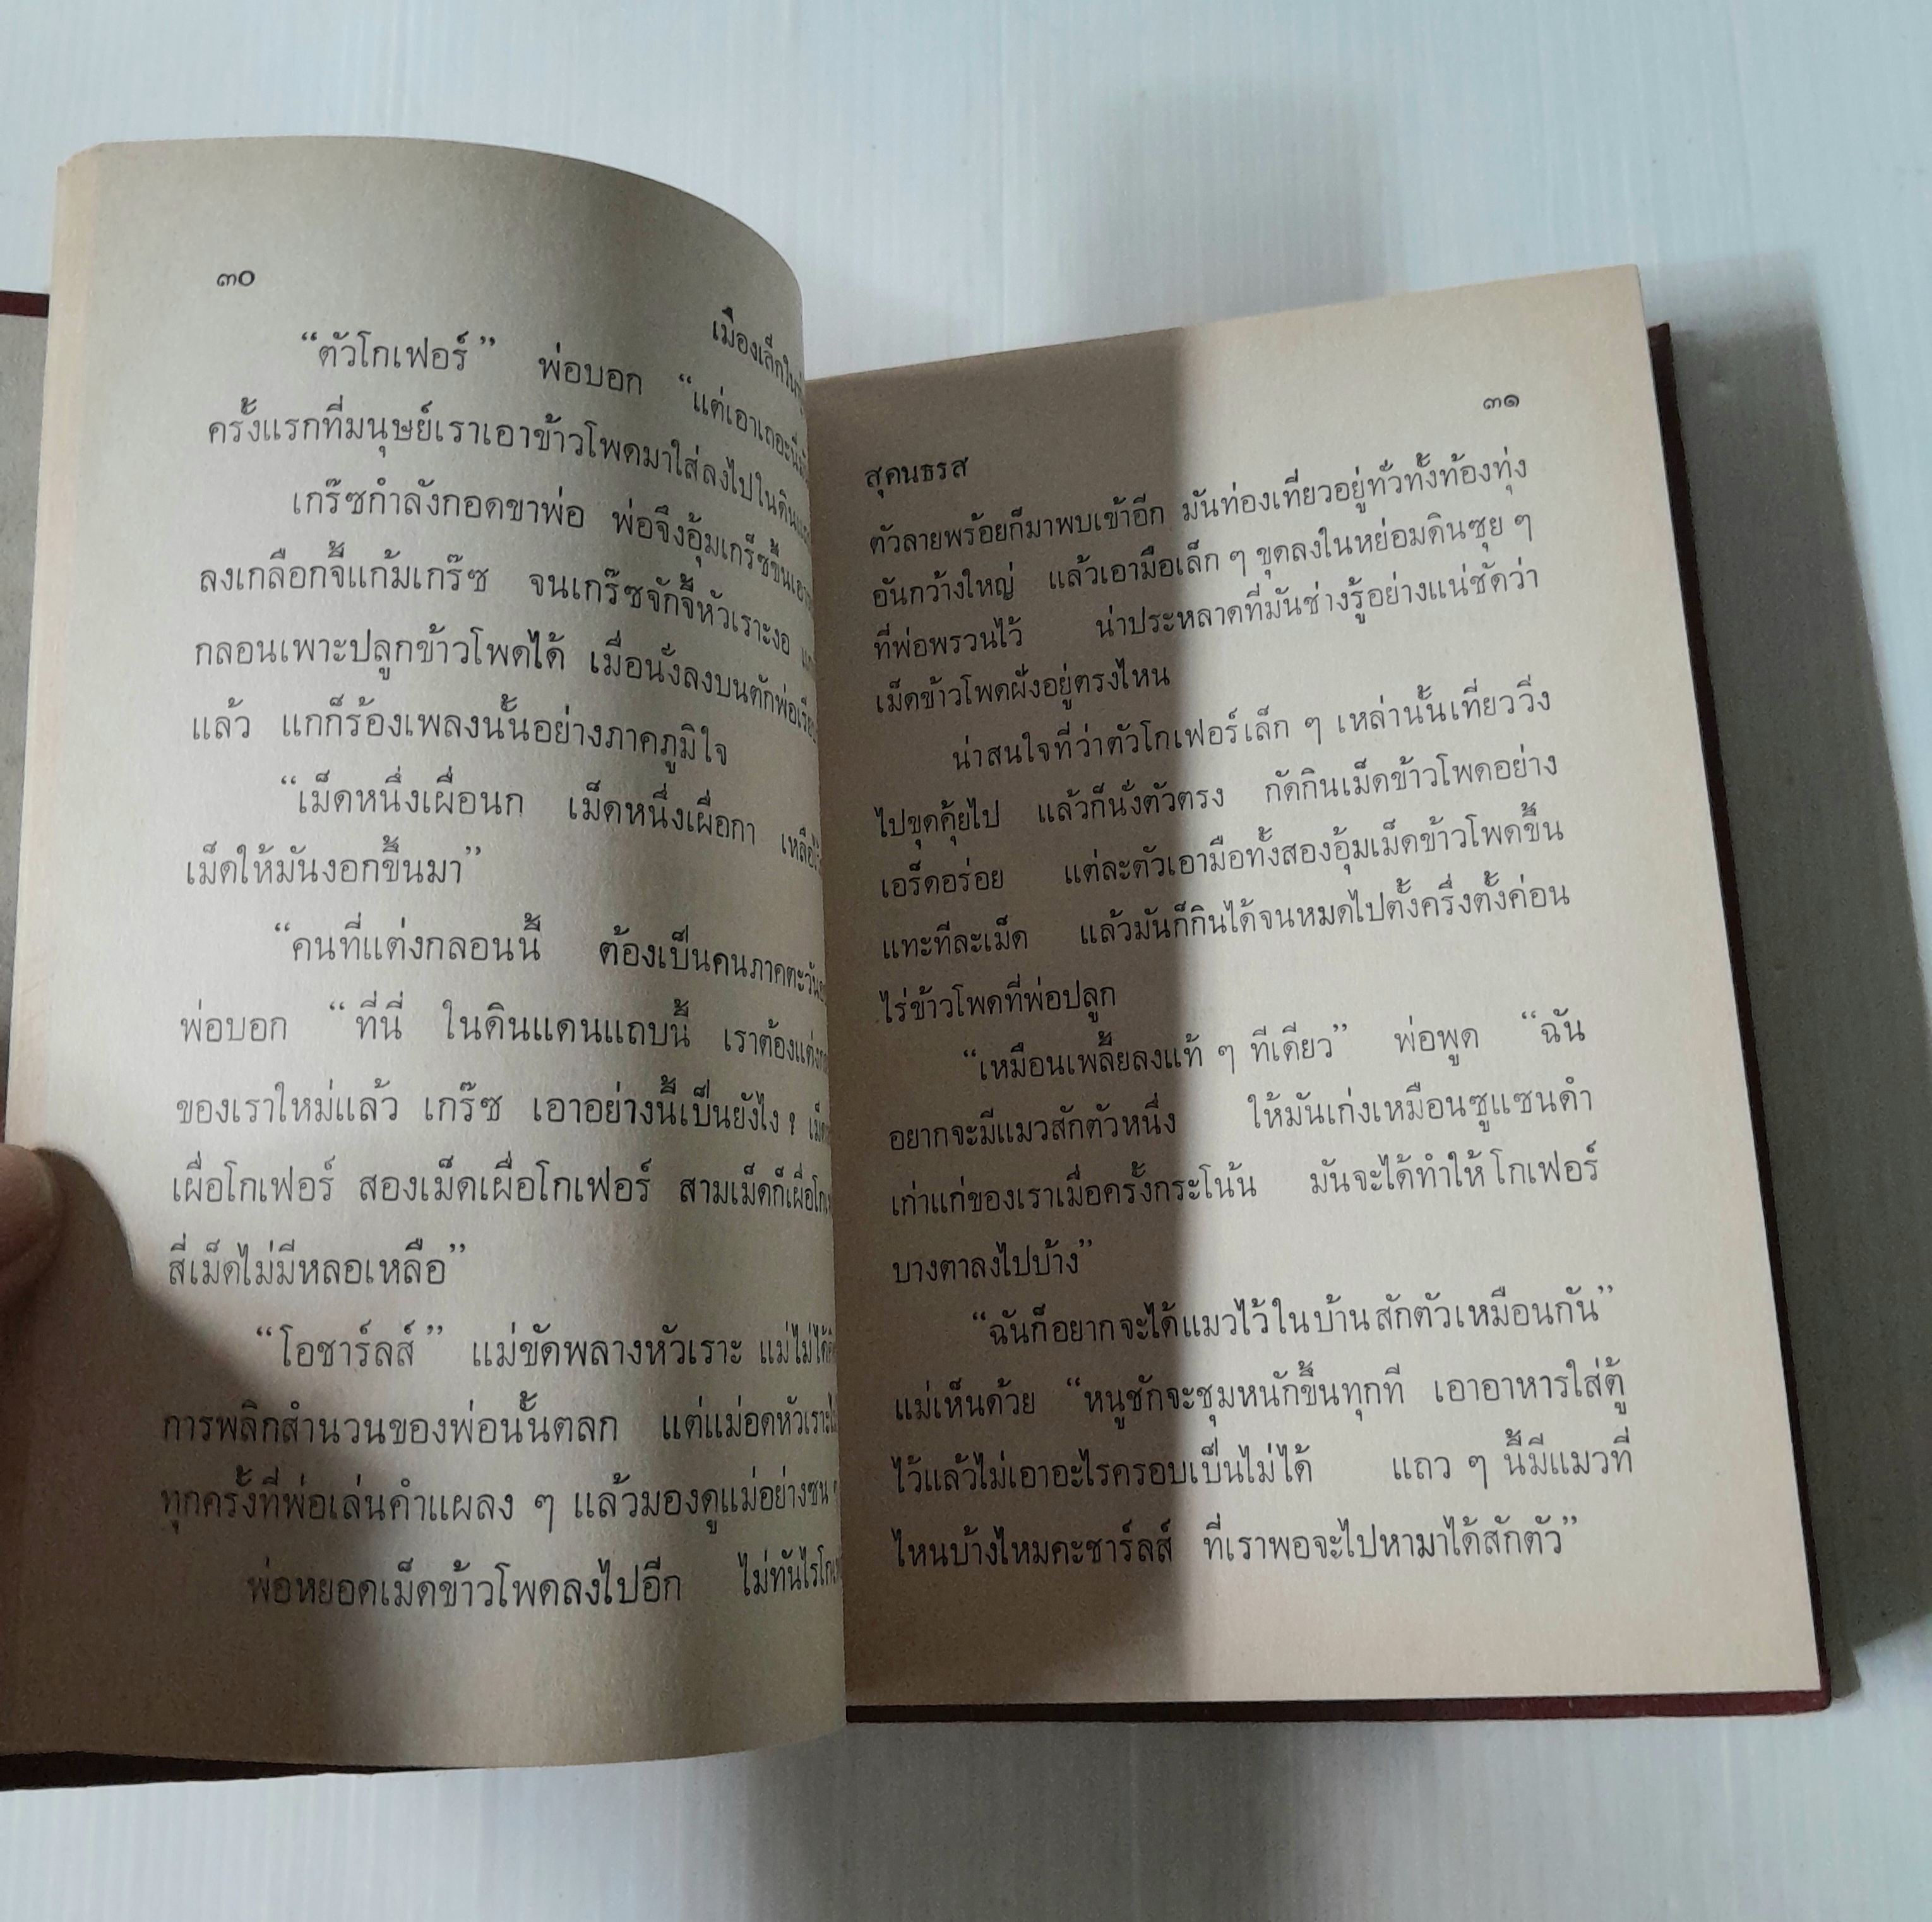 ๓๐
เมืองเล็กใน
“ตัวโกเฟอร์” พ่อบอก “แต่เอาเถอะ
ครั้งแรกที่มนุษย์เราเอาข้าวโพดมาใส่ลงไปในดิน
เกร๊ซกำลังกอดขาพ่อ พ่อจึงอุ้มเกร็ซขึ้น
ลงเกลือกจี้แก้มเกร๊ซ จนเกร๊ซจักจี้หัวเราะงอ
กลอนเพาะปลูกข้าวโพดได้ เมื่อนั่งลงบนตักพ่อ
แล้ว แกก็ร้องเพลงนั้นอย่างภาคภูมิใจ
“เม็ดหนึ่งเผื่อนก เม็ดหนึ่งเผื่อกา
เม็ดให้มันงอกขึ้นมา”
“คนที่แต่งกลอนนี้ ต้องเป็นคนภาคตะวัน
พ่อบอก “ที่นี่ ในดินแดนแถบนี้ เราต้องแต่ง
ของเราใหม่แล้ว เกร๊ซ เอาอย่างนี้เป็นยังไง ?
เผื่อโกเฟอร์ สองเม็ดเผื่อโกเฟอร์ สามเม็ดก็เผื่อ
สี่เม็ดไม่มีหลอเหลือ”
“โอชาร์ลส์” แม่ขัดพลางหัวเราะ แม่ไม่ได้
การพลิกสำนวนของพ่อนั้นตลก แต่แม่อดหัวเราะ
ทุกครั้งที่พ่อเล่นคำแผลง ๆ แล้วมองดูแม่อย่างซน
พ่อหยอดเม็ดข้าวโพดลงไปอีก ไม่ทันไร
๓๑
สุคนธรส
ตัวลายพร้อยก็มาพบเข้าอีก มันท่องเที่ยวอยู่ทั่วทั้งท้องทุ่ง
อันกว้างใหญ่ แล้วเอามือเล็ก ๆ ขุดลงในหย่อมดินซุย ๆ
ที่พ่อพรวนไว้ น่าประหลาดที่มันช่างรู้อย่างแน่ชัดว่า
เม็ดข้าวโพดฝั่งอยู่ตรงไหน
น่าสนใจที่ว่าตัวโกเฟอร์เล็ก ๆ เหล่านั้นเที่ยววิ่ง
ไปขุดคุ้ยไป แล้วก็นั่งตัวตรง กัดกินเม็ดข้าวโพดอย่าง
เอร็ดอร่อย แต่ละตัวเอามือทั้งสองอุ้มเม็ดข้าวโพดขึ้น
แทะทีละเม็ด แล้วมันก็กินได้จนหมดไปตั้งครึ่งตั้งค่อน
ไร่ข้าวโพดที่พ่อปลูก
“เหมือนเพลี้ยลงแท้ ๆ ทีเดียว” พ่อพูด “ฉัน
อยากจะมีแมวสักตัวหนึ่ง ให้มันเก่งเหมือนซูแซนดำ
เก่าแก่ของเราเมื่อครั้งกระโน้น มันจะได้ทำให้โกเฟอร์
บางตาลงไปบ้าง”
“ฉันก็อยากจะได้แมวไว้ในบ้านสักตัวเหมือนกัน”
แม่เห็นด้วย “หนูชักจะชุมหนักขึ้นทุกที เอาอาหารใส่ตู้
ไว้แล้วไม่เอาอะไรครอบเป็นไม่ได้ แถว ๆ นี้มีแมวที่
ไหนบ้างไหมคะชาร์ลส์ ที่เราพอจะไปหามาได้สักตัว”